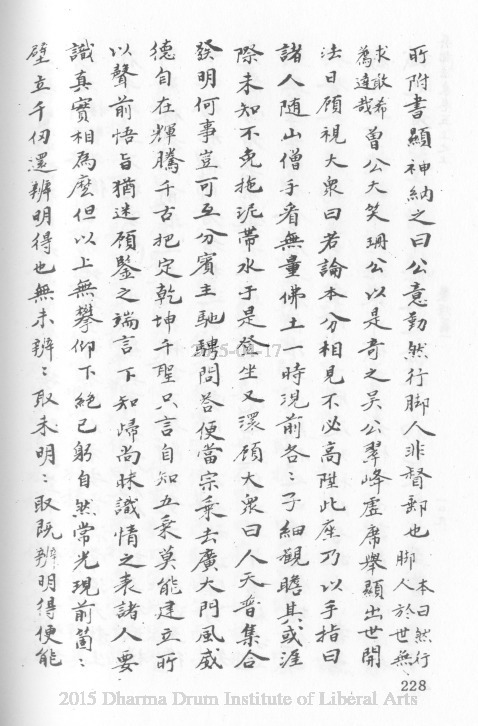 所附書顯神納之曰公意勤然行脚人非督郵也 本日然行
脚人於世無
求敢希
為遠哉 曾公大笑珊公以是奇之吴公翠峰虛席舉顯出世開
法日顧視大衆曰若論本分相見不必高陞此座乃以手指曰
諸人随山僧手看無量佛土一時現前各〻子細觀瞻其或涯
際未知不免拖泥帶水于是登坐又還顧大衆曰人天普集合
發明何事豈可互分賓主馳騁問答便當宗乘去廣大門風威
德自在輝騰千古把定乾坤千聖只言自知五乘莫能建立所
以聲前悟旨猶迷顧鑒之端言下知歸尚昧識情之表諸人要
識真實相為麽但以上無攀仰下絶已躬自然常光現前箇〻
壁立千仞還辨明得也無未辨〻取未明〻取既辨明得便能
228
2015-04-17
2015 Dharma Drum Institute of Liberal Arts